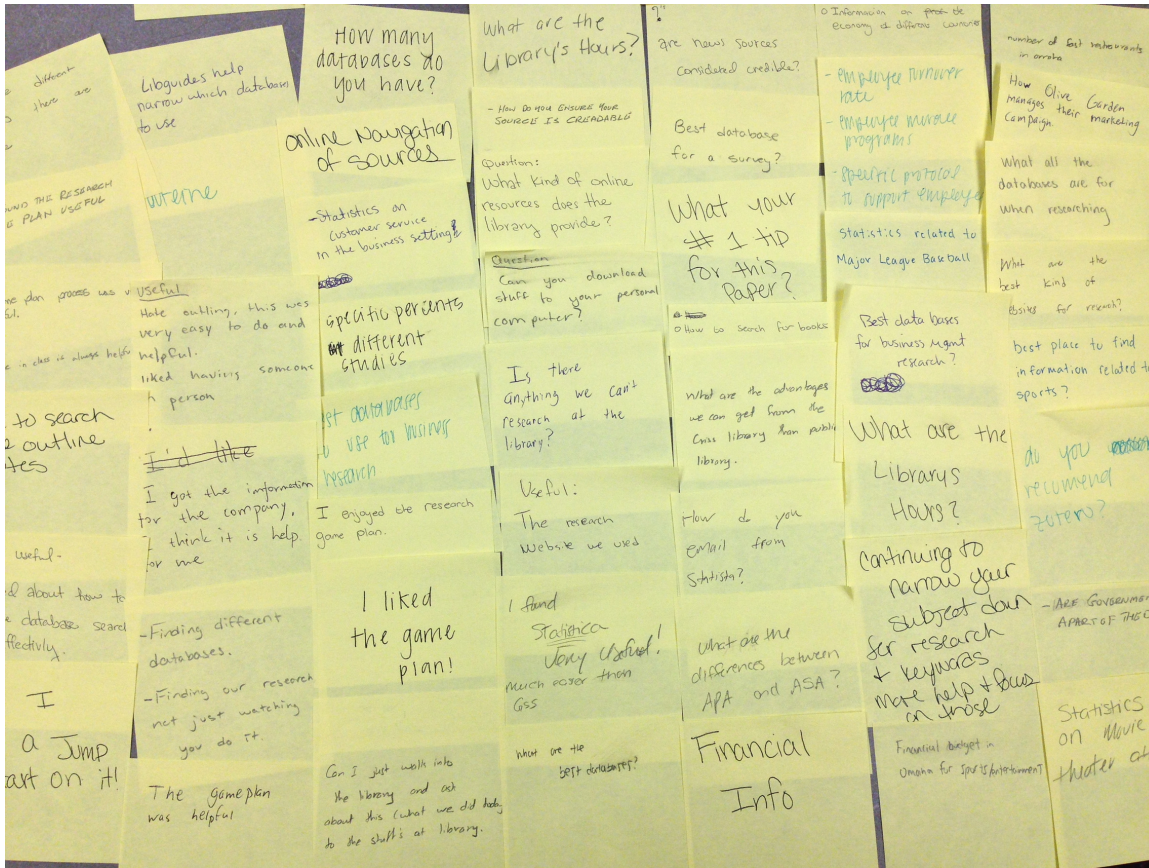 different
there are
OUND THE RESEARCH
PLAN USEFUL
me plan process was
in class is always helpful
to search
outline
tes
useful-
about how to
database search
ffectivly.
I
a Jump
art on it!
Libguides help
narrow which database
to use
interne
useful
Hate outling, this was
very easy to do and
helpful.
liked having someone
person
I'd like
I got the information
for the company,
I think it is help.
for me
-Finding different
databases.
-Finding our research
not just watching
you do it.
The gameplan
was helpful
How many
databases do
you have?
online Navigation
of sources
-Statistics on
customer service
in the business setting?
specific percents
different
studies
est databases
use for business
research
I enjoyed the research
game plan.
I liked
the game
plan!
Can I just walk into
the library and ask
about this (what we did today
to the stuff's at library.
What are the
Library's Hours?
- HOW DO YOU ENSURE YOUR
SOURCE IS CREADABLE
Question:
What kind of online
resources does the
library provide?
Question
Can you download
stuff to your personal
computer?
Is there
anything we can't
research at the
library?
Useful:
The research
Website we used
I found
Statistica
Very Useful!
much easier than
GSS
What are the
best databases?
?
are news sources
considered credible?
Best database
for a survey?
What your
# 1 tip
for this
Paper?
o How to search for books
What are the advantages
we can get from the
Criss library than public
library.
How do you
email from
Statista?
What are the
differences between
APA and ASA?
Financial
Info
o Information on the
economy of different countries
- employee turnover
rate
- employee morale
programs
- specific protocol
to support employee
Statistics related to
Major League Baseball
Best data bases
for business Mgmt
research?
What are the
Librarys
Hours?
Continuing to
narrow your
subject down
for research
+ keywords
more help + focus
on those
Financial budget in
Omaha for Sports/entertainment
number of fast restaurants
in
How Olive Garden
manages their marketing
campaign.
What all the
databases are for
when researching
What are the
best kind of
bsites for research?
best place to find
information related to
sports?
do you
recomend
zotero?
- ARE GOVERNME
APART OF THE
Statistics
on Movie
theater at